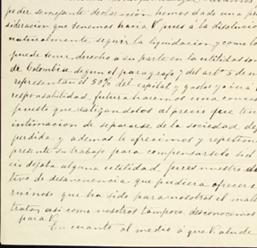 poder semejante declaración hemos dado una pro
sideración que tenemos hacia V. pues á la disolución
naturalmente seguir la liquidacion y como la
puede tener derecho a su parte en la utilidad son
de Colombia segun el paragrafo 7 del artº 5 de n
represertan el 50% del capital y gastos y la
responsabilidad futura hacemos una conces
puesto que realizandolos al precio que ten
intimacion de separarse de la sociedad, de
perdida, y ademas le ofrecimos y
presente su trabajo para compensarselo
cio dejaba alguna utilidad, pues nuestro
tivo de desavenencia que pudiera ofrecer
minos que ha sido para nosotros el mal
tratos, así como nosotros tampoco desconocemos
para V.
En cuanto al medio á que V. alude